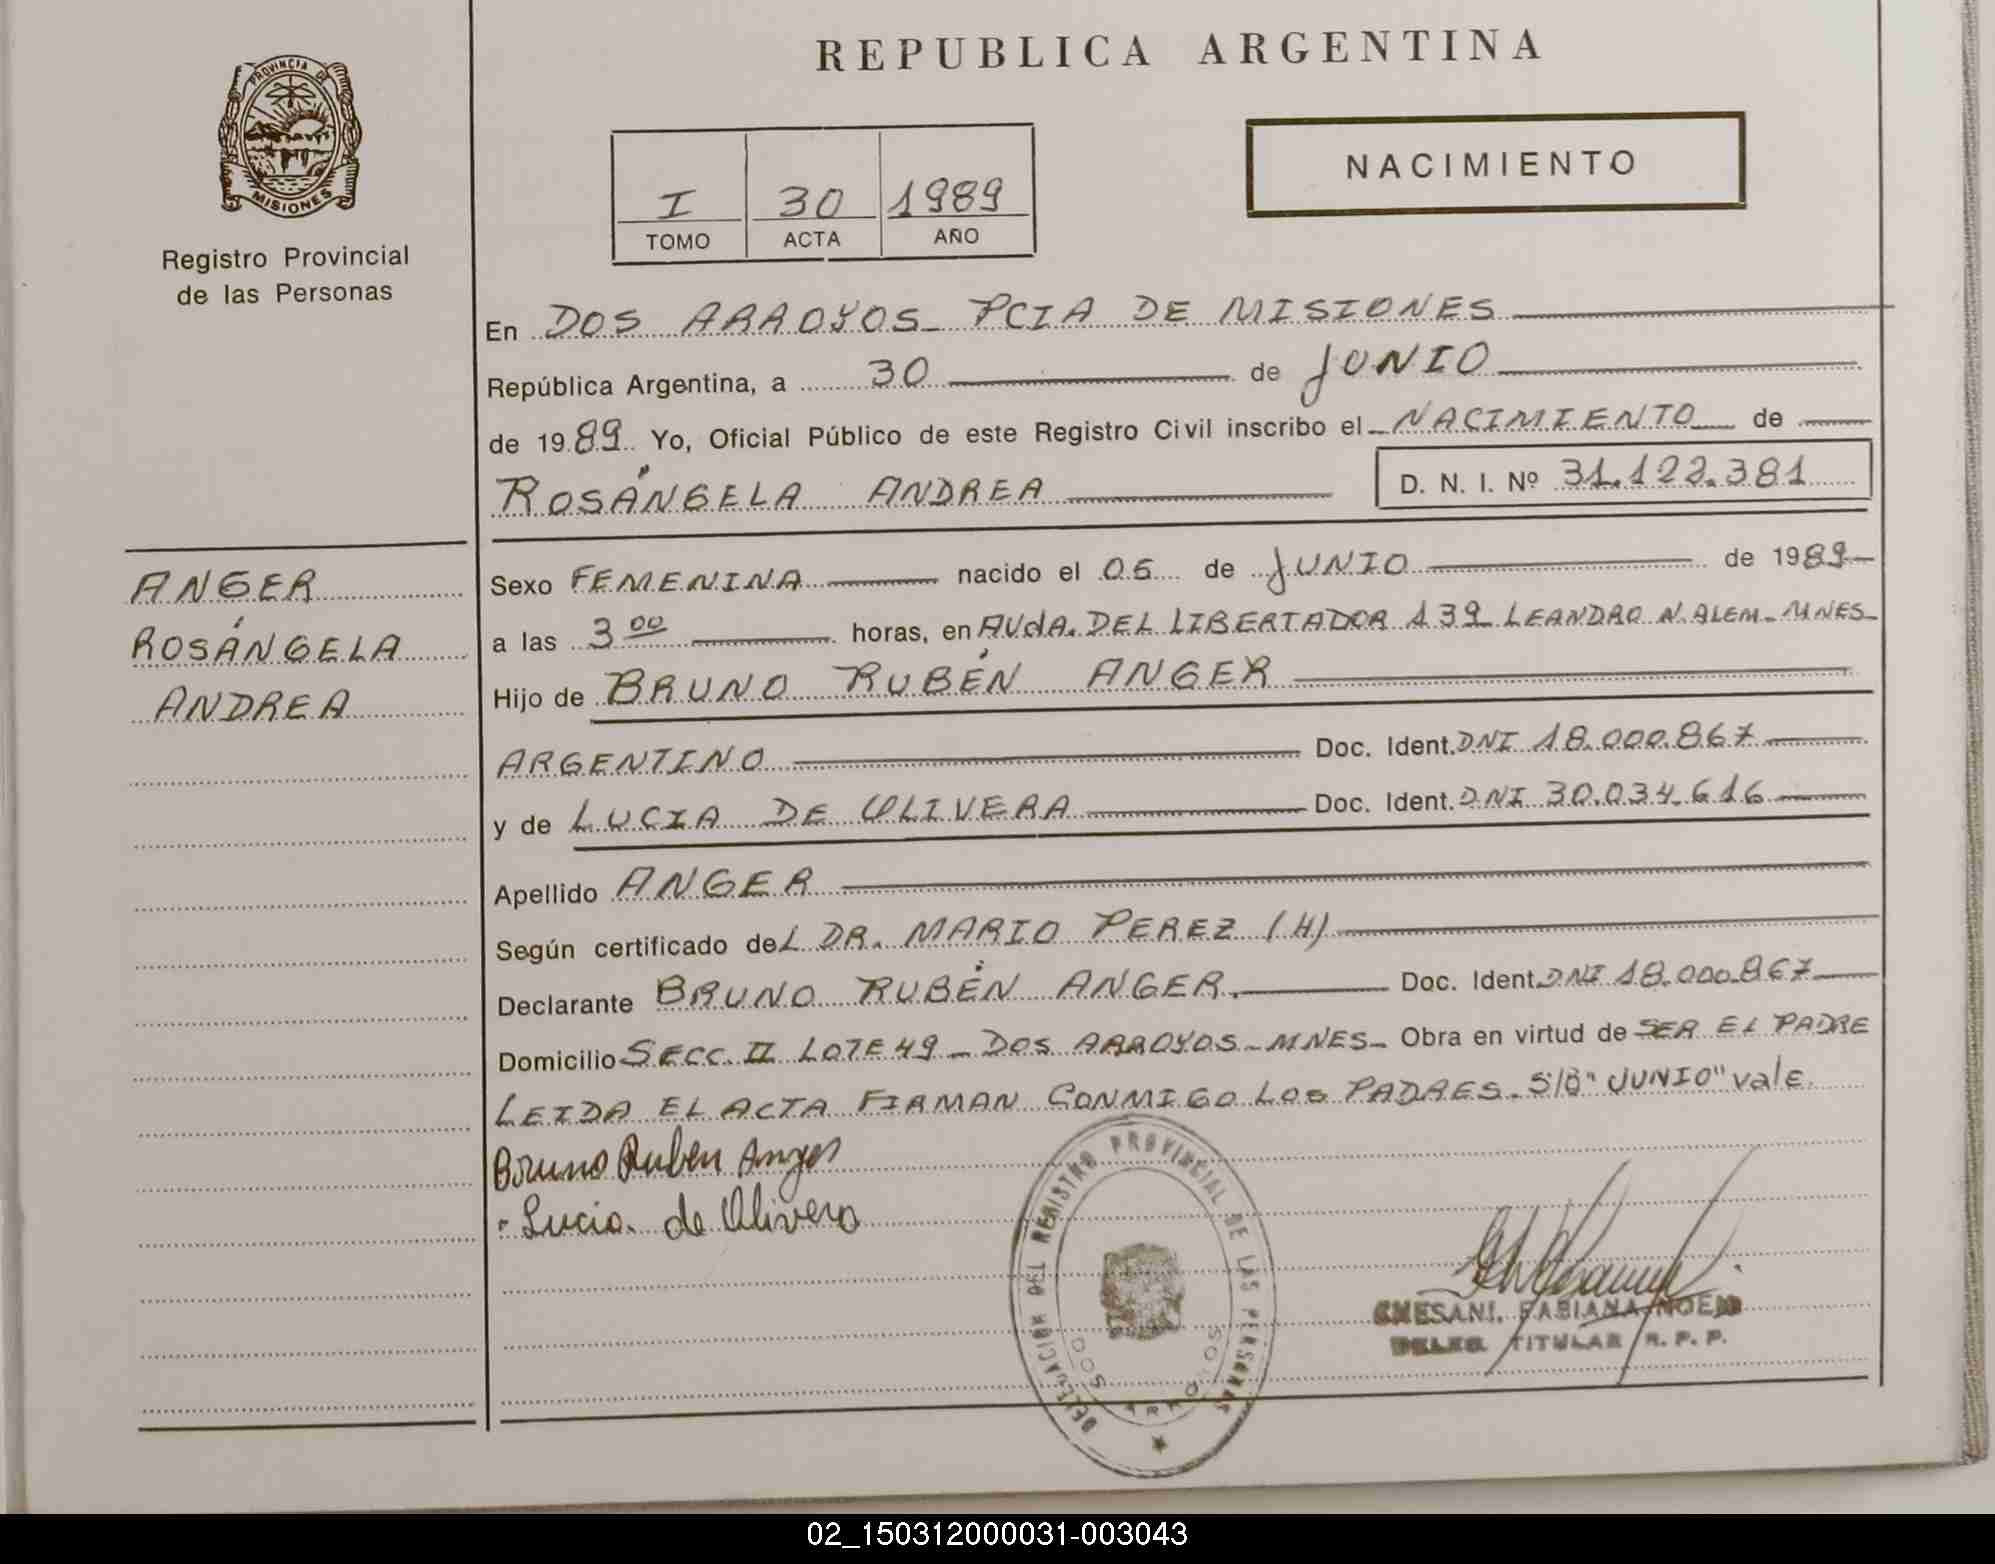 REPUBLICA ARGENTINA
PROVINCIA DE
MISIONES
Registro Provincial
de las Personas
I 30 1989
TOMO ACTA AÑO
NACIMIENTO
En DOS ARROYOS_ PCIA DE MISIONES
República Argentina, a 30 de JUNIO
de 1989. Yo, Oficial Público de este Registro Civil inscribo el NACIMIENTO de
ROSÁNGELA ANDREA D. N. I. Nº 31.122.381
ANGER
ROSÁNGELA
ANDREA
Sexo FEMENINA nacido el 06 de JUNIO de 1989
a las 3 00 horas, en AVdA. DEL LIBERTADOR 139 LEANDRO N. ALEM_ MNES_
Hijo de BRUNO RUBÉN ANGER
ARGENTINO Doc. Ident. DNI 18.000.867
y de LUCIA DE OLIVERA Doc. Ident. DNI 30.034.616
Apellido ANGER
Según certificado deL DR. MARIO PEREZ (H)
Declarante BRUNO RUBÉN ANGER. Doc. Ident DNI 18.000.867
Domicilio SECC. II LOTE 49_ DOS ARROYOS_ MNES_ Obra en virtud de SER EL PADRE
LEIDA EL ACTA FIRMAN CONMIGO LOS PADRES. S/B "JUNIO" vale.
Bruno Ruben Anger
Lucia. de Olivera
DELEGACION DEL REGISTRO PROVINCIAL DE LAS PERSONAS
DOS ARROYOS
CHESANI, FABIANA NOEMI
DELEG. TITULAR R. P. P.
02_150312000031-003043